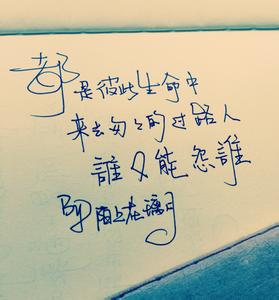 都是彼此生命中
来去匆匆的过路人
誰又能怨誰
By陌上在